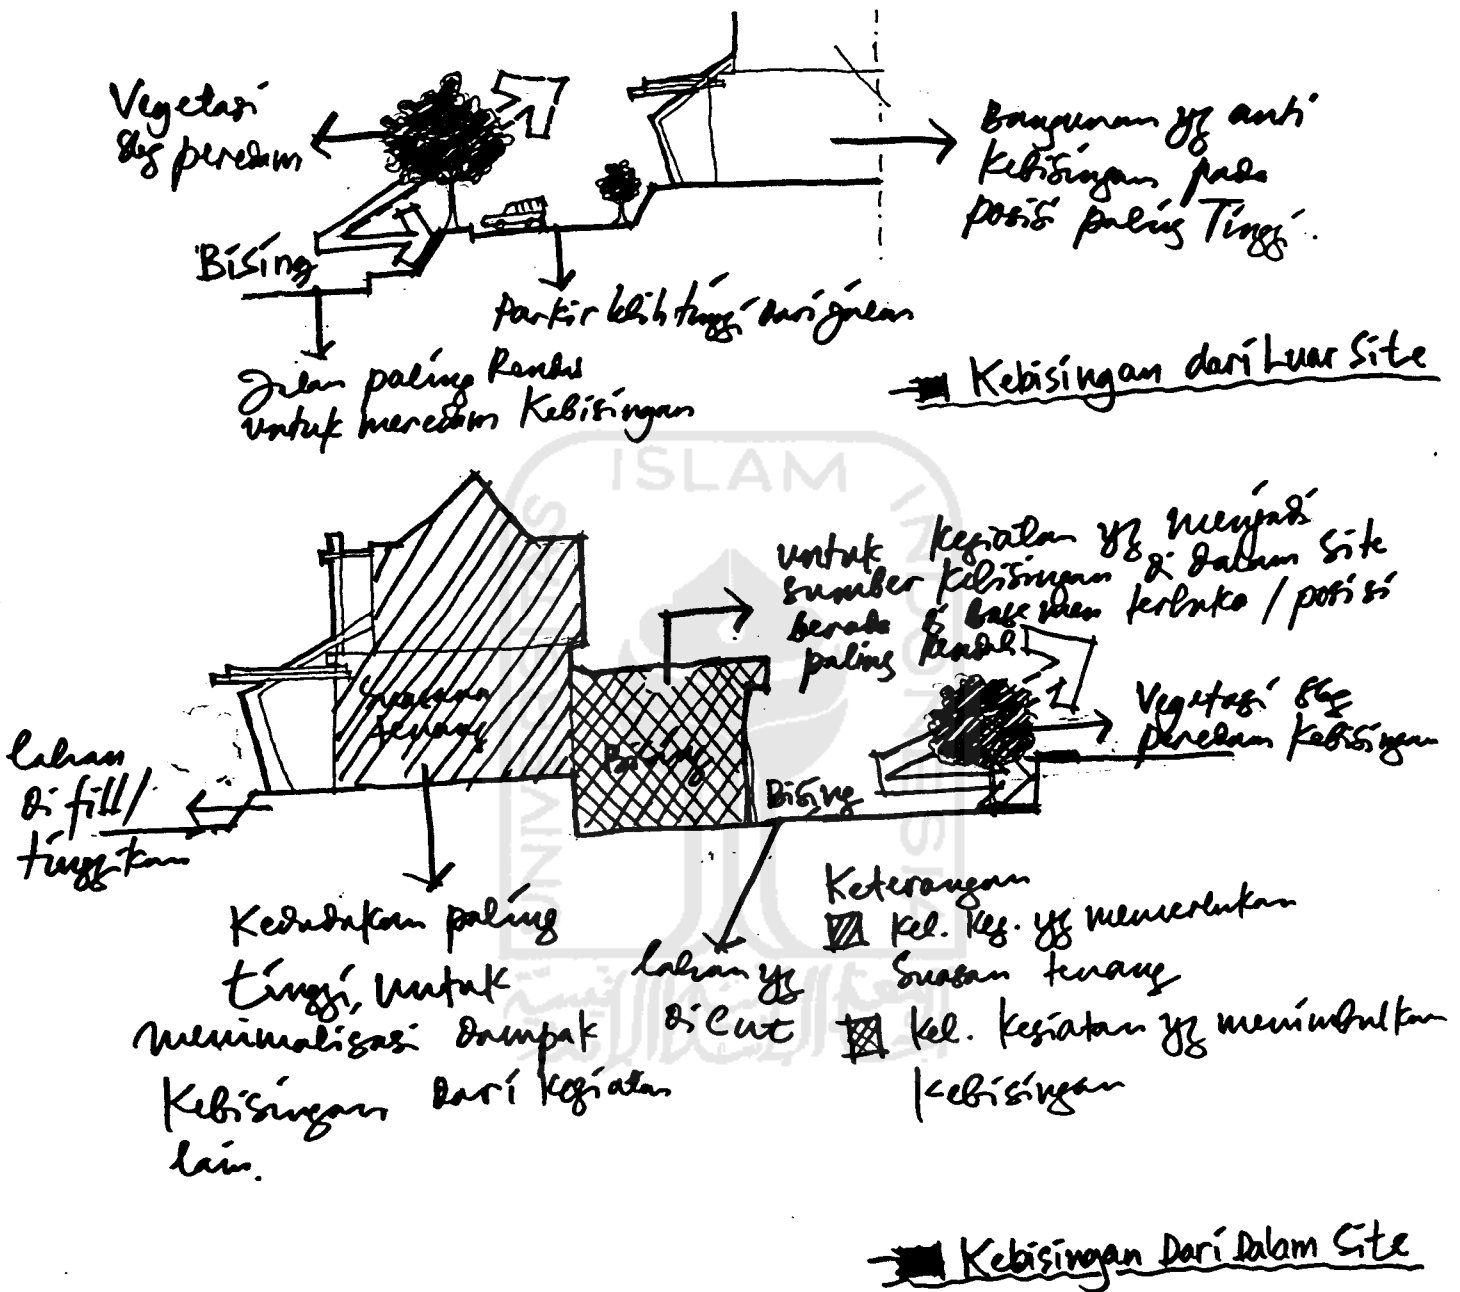 Vegetasi
sbg peredam
Bising
Bangunan yg anti
kebisingan pada
posisi paling Tinggi.
Parkir lebih tinggi dari jalan
Jalan paling Rendah
untuk meredam Kebisingan
Kebisingan dari Luar Site
untuk kegiatan yg menjadi
sumber kebisingan di dalam site
berada di basemen terbuka / posisi
paling Rendah
Suasana
tenang
Bising
Bising
Vegetasi sbg
peredam Kebisingan
lahan
di fill/
tinggikan
Kedudukan paling
tinggi, untuk
menimalisasi dampak
Kebisingan dari kegiatan
lain.
lahan yg
di cut
Keterangan
Kel. Keg. yg memerlukan
Suasan tenang
Kel. Kegiatan yg menimbulkan
Kebisingan
Kebisingan Dari Dalam Site
UNIVERSITAS
ISLAM
INDONESIA